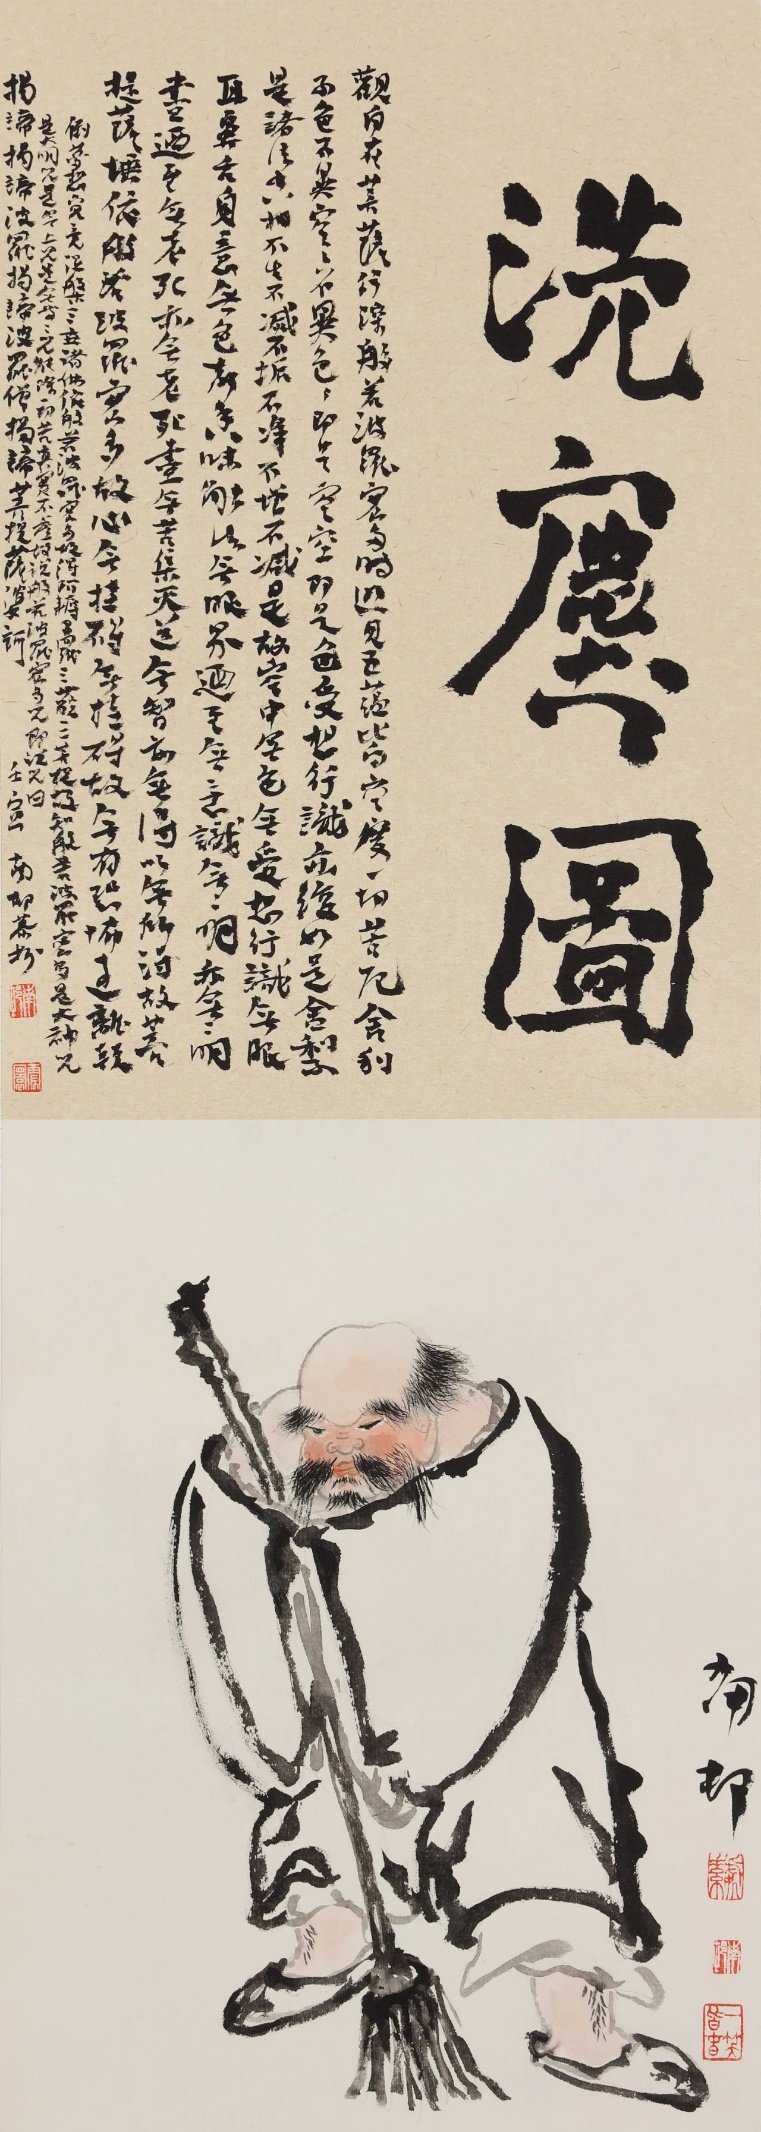 洗塵圖
觀自在菩薩行深般若波羅蜜多時照見五蘊皆空度一切苦厄舍利
子色不異空〻不異色〻即是空空即是色受想行識亦復如是舍
是諸法空相不生不滅不垢不淨不增不減是故空中無色無受想行識無眼
耳鼻舌身意無色聲香味觸法無眼界廼至無意識無〻明亦無〻明
盡廼至無老死亦無老死盡無苦集滅道無智亦無得以無所得故菩
提薩埵依般若波羅蜜多故心無掛礙無掛礙故無有恐怖遠離顛
倒夢想究竟涅槃三世諸佛依般若波羅蜜多故得阿耨多羅三藐三菩提故知般若波羅蜜多是大神咒
是大明咒是無上咒是無等〻咒能除一切苦真實不虛故說般若波羅蜜多咒即說咒曰
揭諦揭諦波羅揭諦波羅僧揭諦菩提薩婆訶
壬寅 南邨恭抄
南邨
南邨
南邨